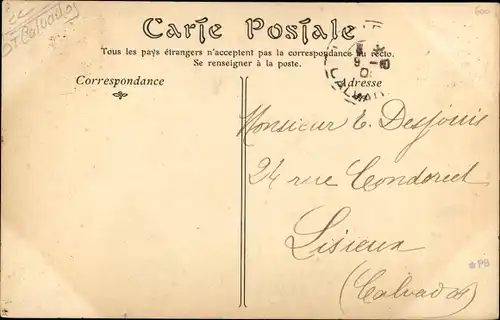 Carte Postale
Tous les pays étrangers n'acceptent pas la correspondance au recto.
Se renseigner à la poste.
Correspondance
Adresse
Calvados
600
CALVA
Monsieur E. Desjouis
24 rue Condorcet
Lisieux
(Calvados)
*PB